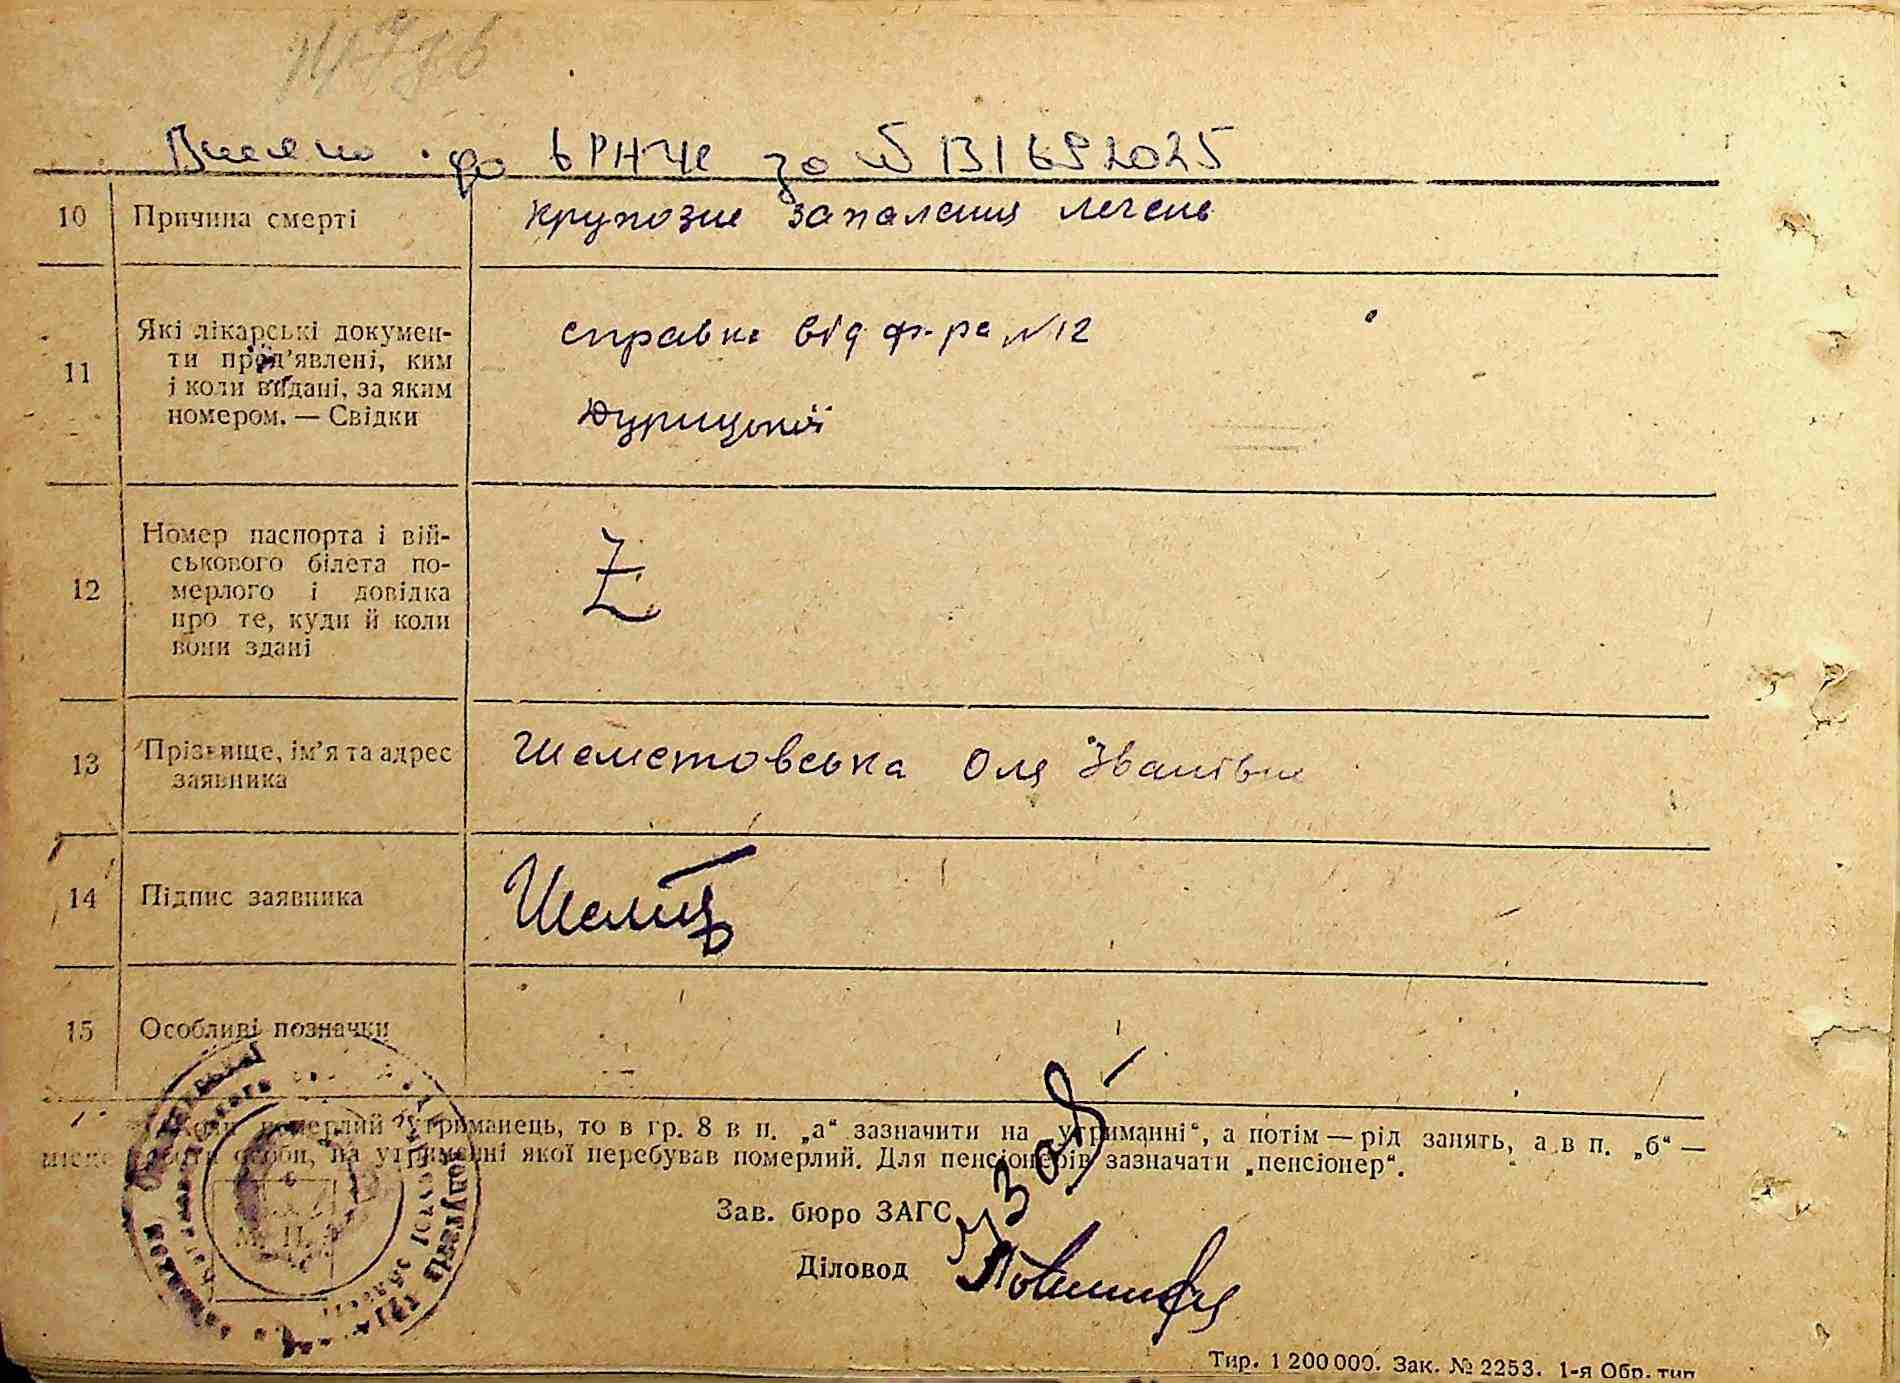 Внесено до ЄРНЧС за № 1316S2025
10 Причина смерті крупозне запалення легень
11 Які лікарські докумен-
ти пред'явлені, ким
і коли видані, за яким
номером. — Свідки
справка від ф-ра №12
12 Номер паспорта і вій-
ськового білета по-
мерлого і довідка
про те, куди й коли
вони здані
Z
13 Прізвище, ім'я та адрес
заявника
Шеметовська Оля Іванівна
14 Підпис заявника
15 Особливі позначки
померлий утриманець, то в гр. 8 в п. „а“ зазначити на „утриманні“, а потім — рід занять, а в п. „б“ —
особи, на утриманні якої перебував померлий. Для пенсіонерів зазначати „пенсіонер“.
Зав. бюро ЗАГС
Діловод
М. П.
Тир. 1 200 000. Зак. № 2253. 1-я Обр. тип